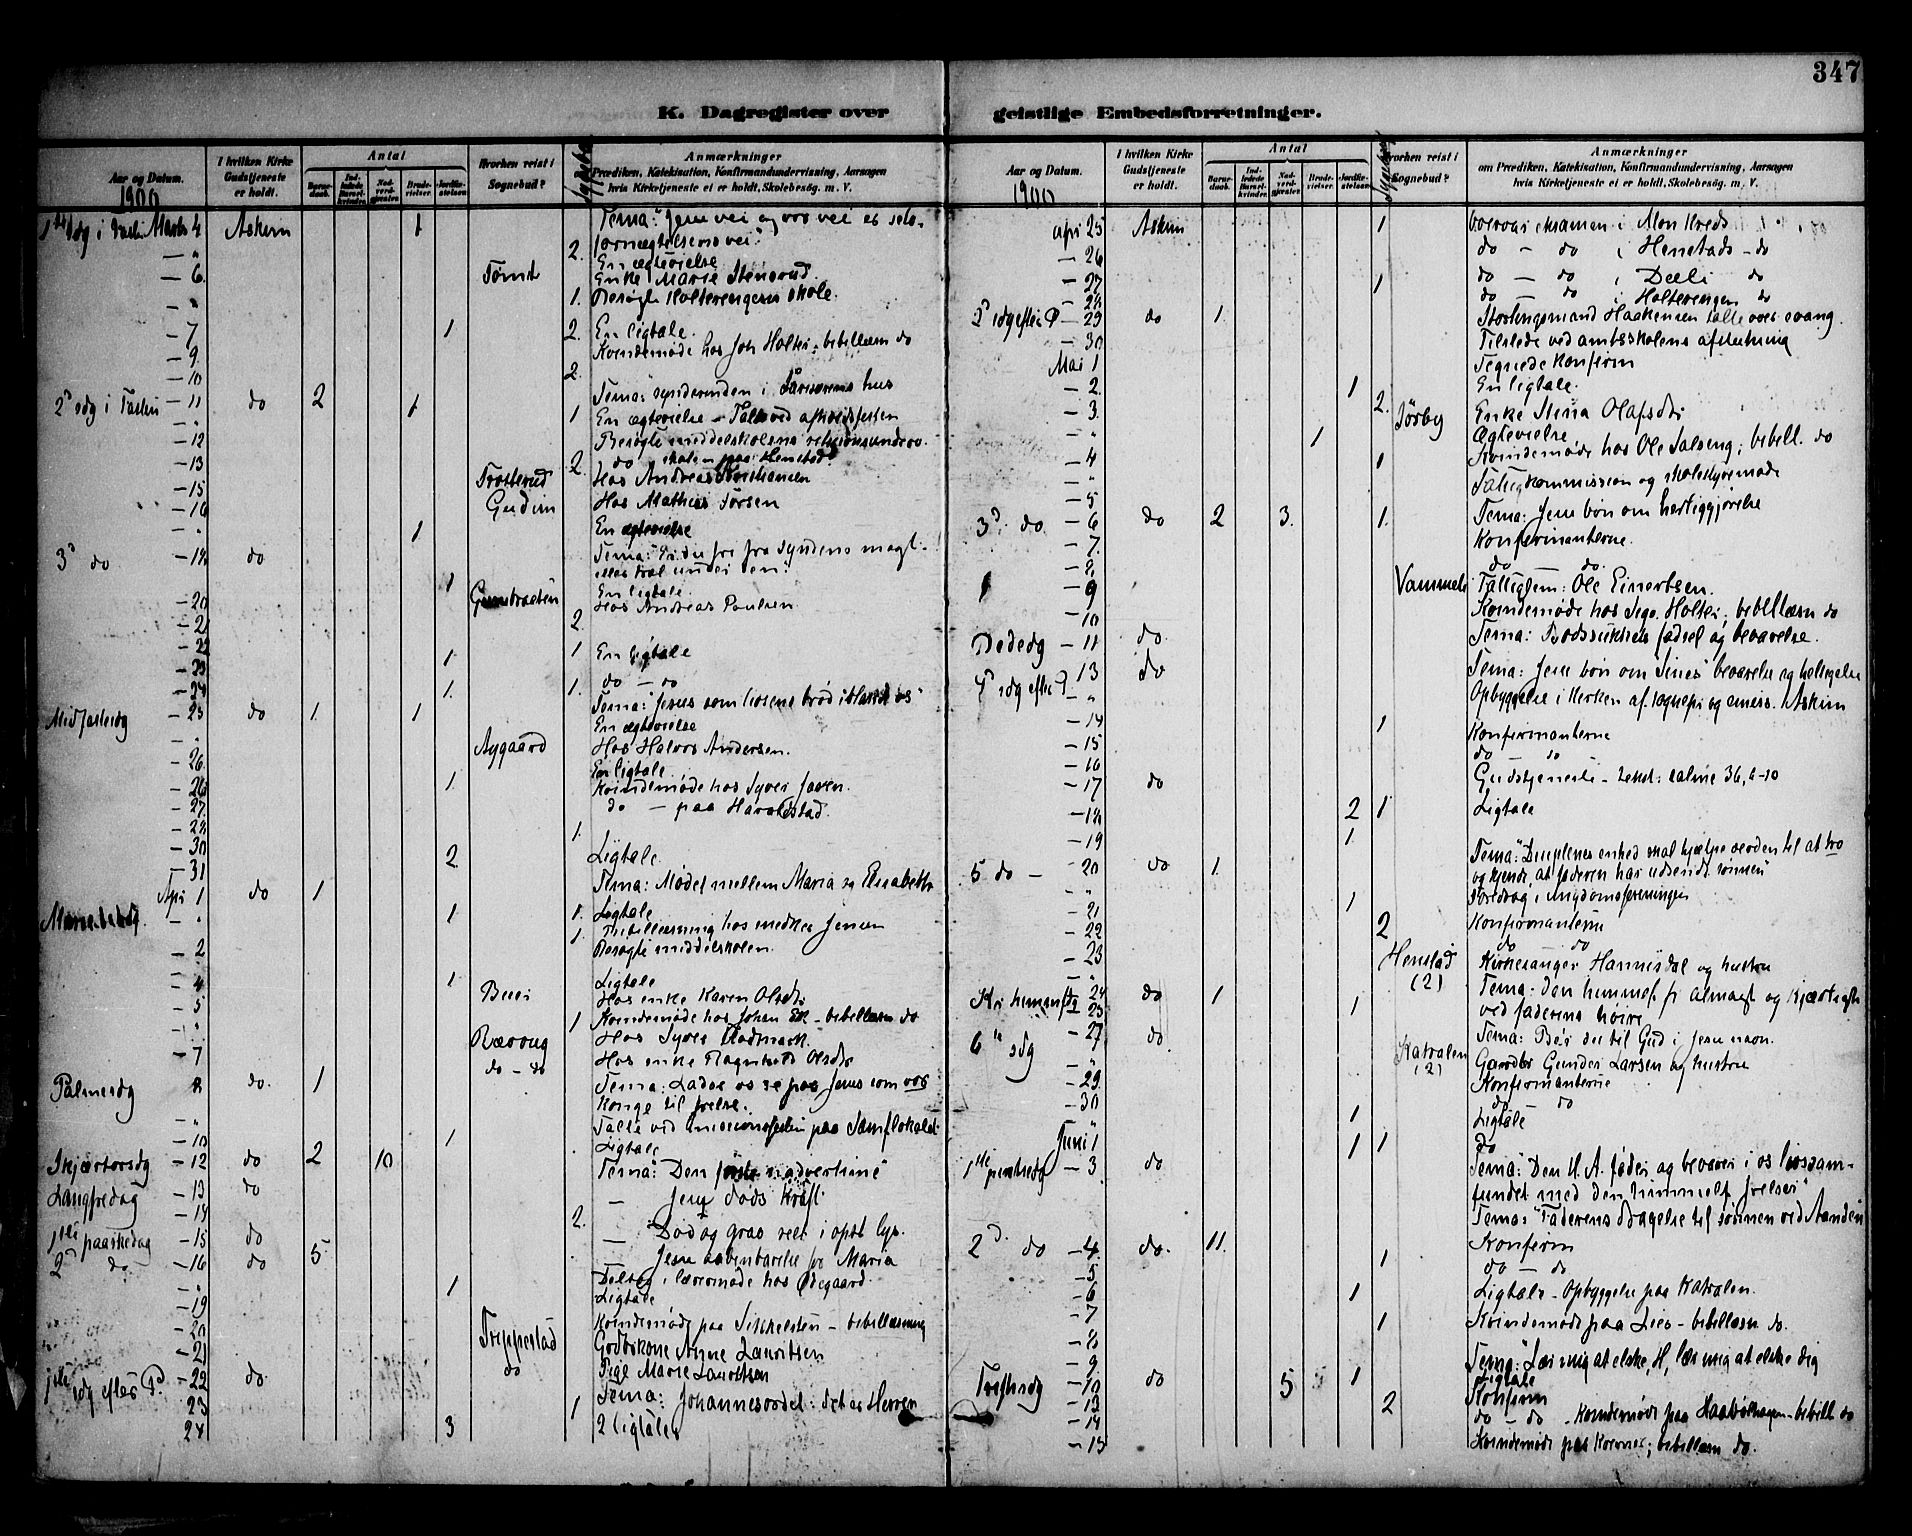 347
K. Dagregister over geistlige Embedsforretninger.
Aar og Datum.
I hvilken Kirke Gudstjeneste er holdt.
Antal
Barnedaab.
Indledede Barselkvinder.
Nadverdgjester.
Brudevielser.
Jordfæstelser.
Hvorhen reist i Sognebud?
Sygebesøg
Anmærkninger
om Prædiken, Katekisation, Konfirmandundervisning, Aarsagen
hvis Kirketjeneste ei er holdt, Skolebesøg. m. V.
1900
1ste sdg i Fasten Marts 4 Askim 1 Tema: "Jesu vei og vor vei er selv-
fornægtelsens vei."
— " 2. En ægtevielse
— 6. Tømt Enke Marie Stensrud.
— " 1. Besøgte Holtevengens skole.
— 7 1 2. En ligtale.
— 9. Kvindemøde hos Joh Holter; bibellæsn do
— 10 2.
2d sdg i Fasten — 11 do 2 1 Tema: synderinden i Farisæerens hus
— " 1 En ægtevielse — Tale ved afholdsfesten
— 12 Besøgte middelskolens religionsunderv.
— 13 2. do skolen paa Henstad
— 15 Trøtterud Hos Andreas Kristiansen
— 16 Gudim Hos Mathias Torsen
— " 1 En ægtevielse
3d do — 18 do Tema: "Er du fri fra syndens magt
eller træl under den?"
1 En ligtale
— 20 Hos Andreas Paulsen
— 21 2.
— 22 1 1 En ligtale
— 23
— 24 1. 1. do — do
Midfastesdg — 25 do 1. 1 Tema: "Jesus som livsens brød iblandt os"
— " En ægtevielse
— 26. Aygaard Hos Halvor Andersen.
— 26 1 En ligtale
— 27. Kvindemøde hos Syver Jaren.
— 28 do — paa Haraldstad.
— 30 1.
— 31 2 Ligtale.
Apr 1 do 1 Tema: Mødet mellem Maria og Elisabeth
Mariæ bebdg. — " 1 1. Ligtale
1. Bibellæsning hos snedker Jensen
— 2 Besøgte middelskolen.
— 4 1 Ligtale
— 5 Buer Hos enke Karen Olsdtr
— " 1 Kvindemøde hos Johan Ek — bibellæsn do
— 7 Rævoug Hos Syver Rødmark.
do — do Hos enke Ragnhild Olsdtr
Palmesdg 8 do. 1 Tema: Lader os se paa Jesus som vor
Konge til frelse.
— " Talte ved missionsfesten paa Samflokalet
— 10 1 Ligtale
Skjærtorsdg — 12 do 2 10 Tema: "Den første nadvertime"
Langfredag — 13 do — Jesu døds kraft
— 14 2.
1ste paaskedag — 15 do — Død og grav sees i opst lys.
2d do — 16 do 5 — Jesu aabenbarelse for Maria
— " Deltog i læremøde hos Ødegaard.
— 19 1 Ligtale
— 20 Kvindemøde paa Sekkelsten — bibellæsning
— 21 Trippestad Godbskone Anne Lauritsen
do Pige Marie Lauritsen
1ste sdg efter P. — 22 do. Tema: Johannesordet: det er Herren
23 1
24 3 2 ligtaler
1900
Apr 25 Askim 1 Overvar eksamen i Mon Kreds
— 26 do — do i Henstads — do
— 27 1 do — do i Dæli do
— 28 do — do i Holtevengen do
2d sdg efter P — 29 do 1. Stortingsmand Haakensen talte over evang.
— 30 Tilstede ved amtsskolens afslutning
Mai 1 Tegnede Konfirm
— 2. 1 En ligtale.
— 3. 2. Tørby Enke Stina Olafsdtr
— " 1 Ægtevielse
— 4 1 Kvindemøde hos Ole Salseng; bibell. do
— " Fattigkommission og skolestyremøde
— 5
3d do. — 6 do 2 3. 1. Tema: Jesu bøn om herliggjørelse
— 7. Konfirmanterne.
— 8. do — do.
— 9 Vammeli Fattiglem: Ole Einertsen.
— 10 Kvindemøde hos Sige. Holter; bibellæsn do
Bededg — 11 do Tema: Bodssukkets fødsel og bevarelse.
4d sdg efter P 13 do Tema: Jesu bøn om "Sines" bevarelse og helligelse
— " Opbyggelse i Kirken af sognepr og emiss. Askim
— 14 1 Konfirmanterne
— 15 do do
— 16
— 17 do Gudstjeneste — tekst: salme 36, 6-10
— 18 2 1 Ligtale
— 19 1
5 do — — 20 do 1. Tema: "Disiplenes enhed skal hjælpe verden til at tro
og kjende, at faderen har udsendt sønnen"
— " Foredrag i Ungdomsforeningen
— 21 1
— 22 2 Konfirmanterne
— 23 do do
— " Henstad (2) Kirkesanger Hannisdal og hustru
Kr. himmelf dg 24 do 1 Tema: Den himmelf fr almagt og kjærlighe
ved faderens høire
25 1
6te sdg — 27 do Tema: Bør du til Gud i Jesu navn.
— " Katralen (2) Gaardbr Gunder Larsen og hustru
— 29. Konfirmanterne
— 30 do do
— " 1 Ligtale
Juni 1 1 1 do
1ste pinsedg — 3 do Tema: "Den H. A. føder og bevarer i os livssam-
fundet med den himmelf frelser"
2d. do — 4. do. 11. Tema: "Faderens dragelse til sønnen ved Aanden
— 5 1 Konfirm
— 6 do — do
— 7 1 Ligtale — Opbyggelse paa Katralen.
— 8 1 Kvindemøde paa Lier — bibellæsn do.
— 9
Trefh.sdg — 10 do 5 1 Tema: "Lær mig at elske, H, lær mig at elske dig
Ligtale
— 13 2 Konfirm
— 14 do — do — Kvindemøde paa Haabøhagen — bibell do
— 15 Kvindemøde paa Korsnes; bibellæsn do.